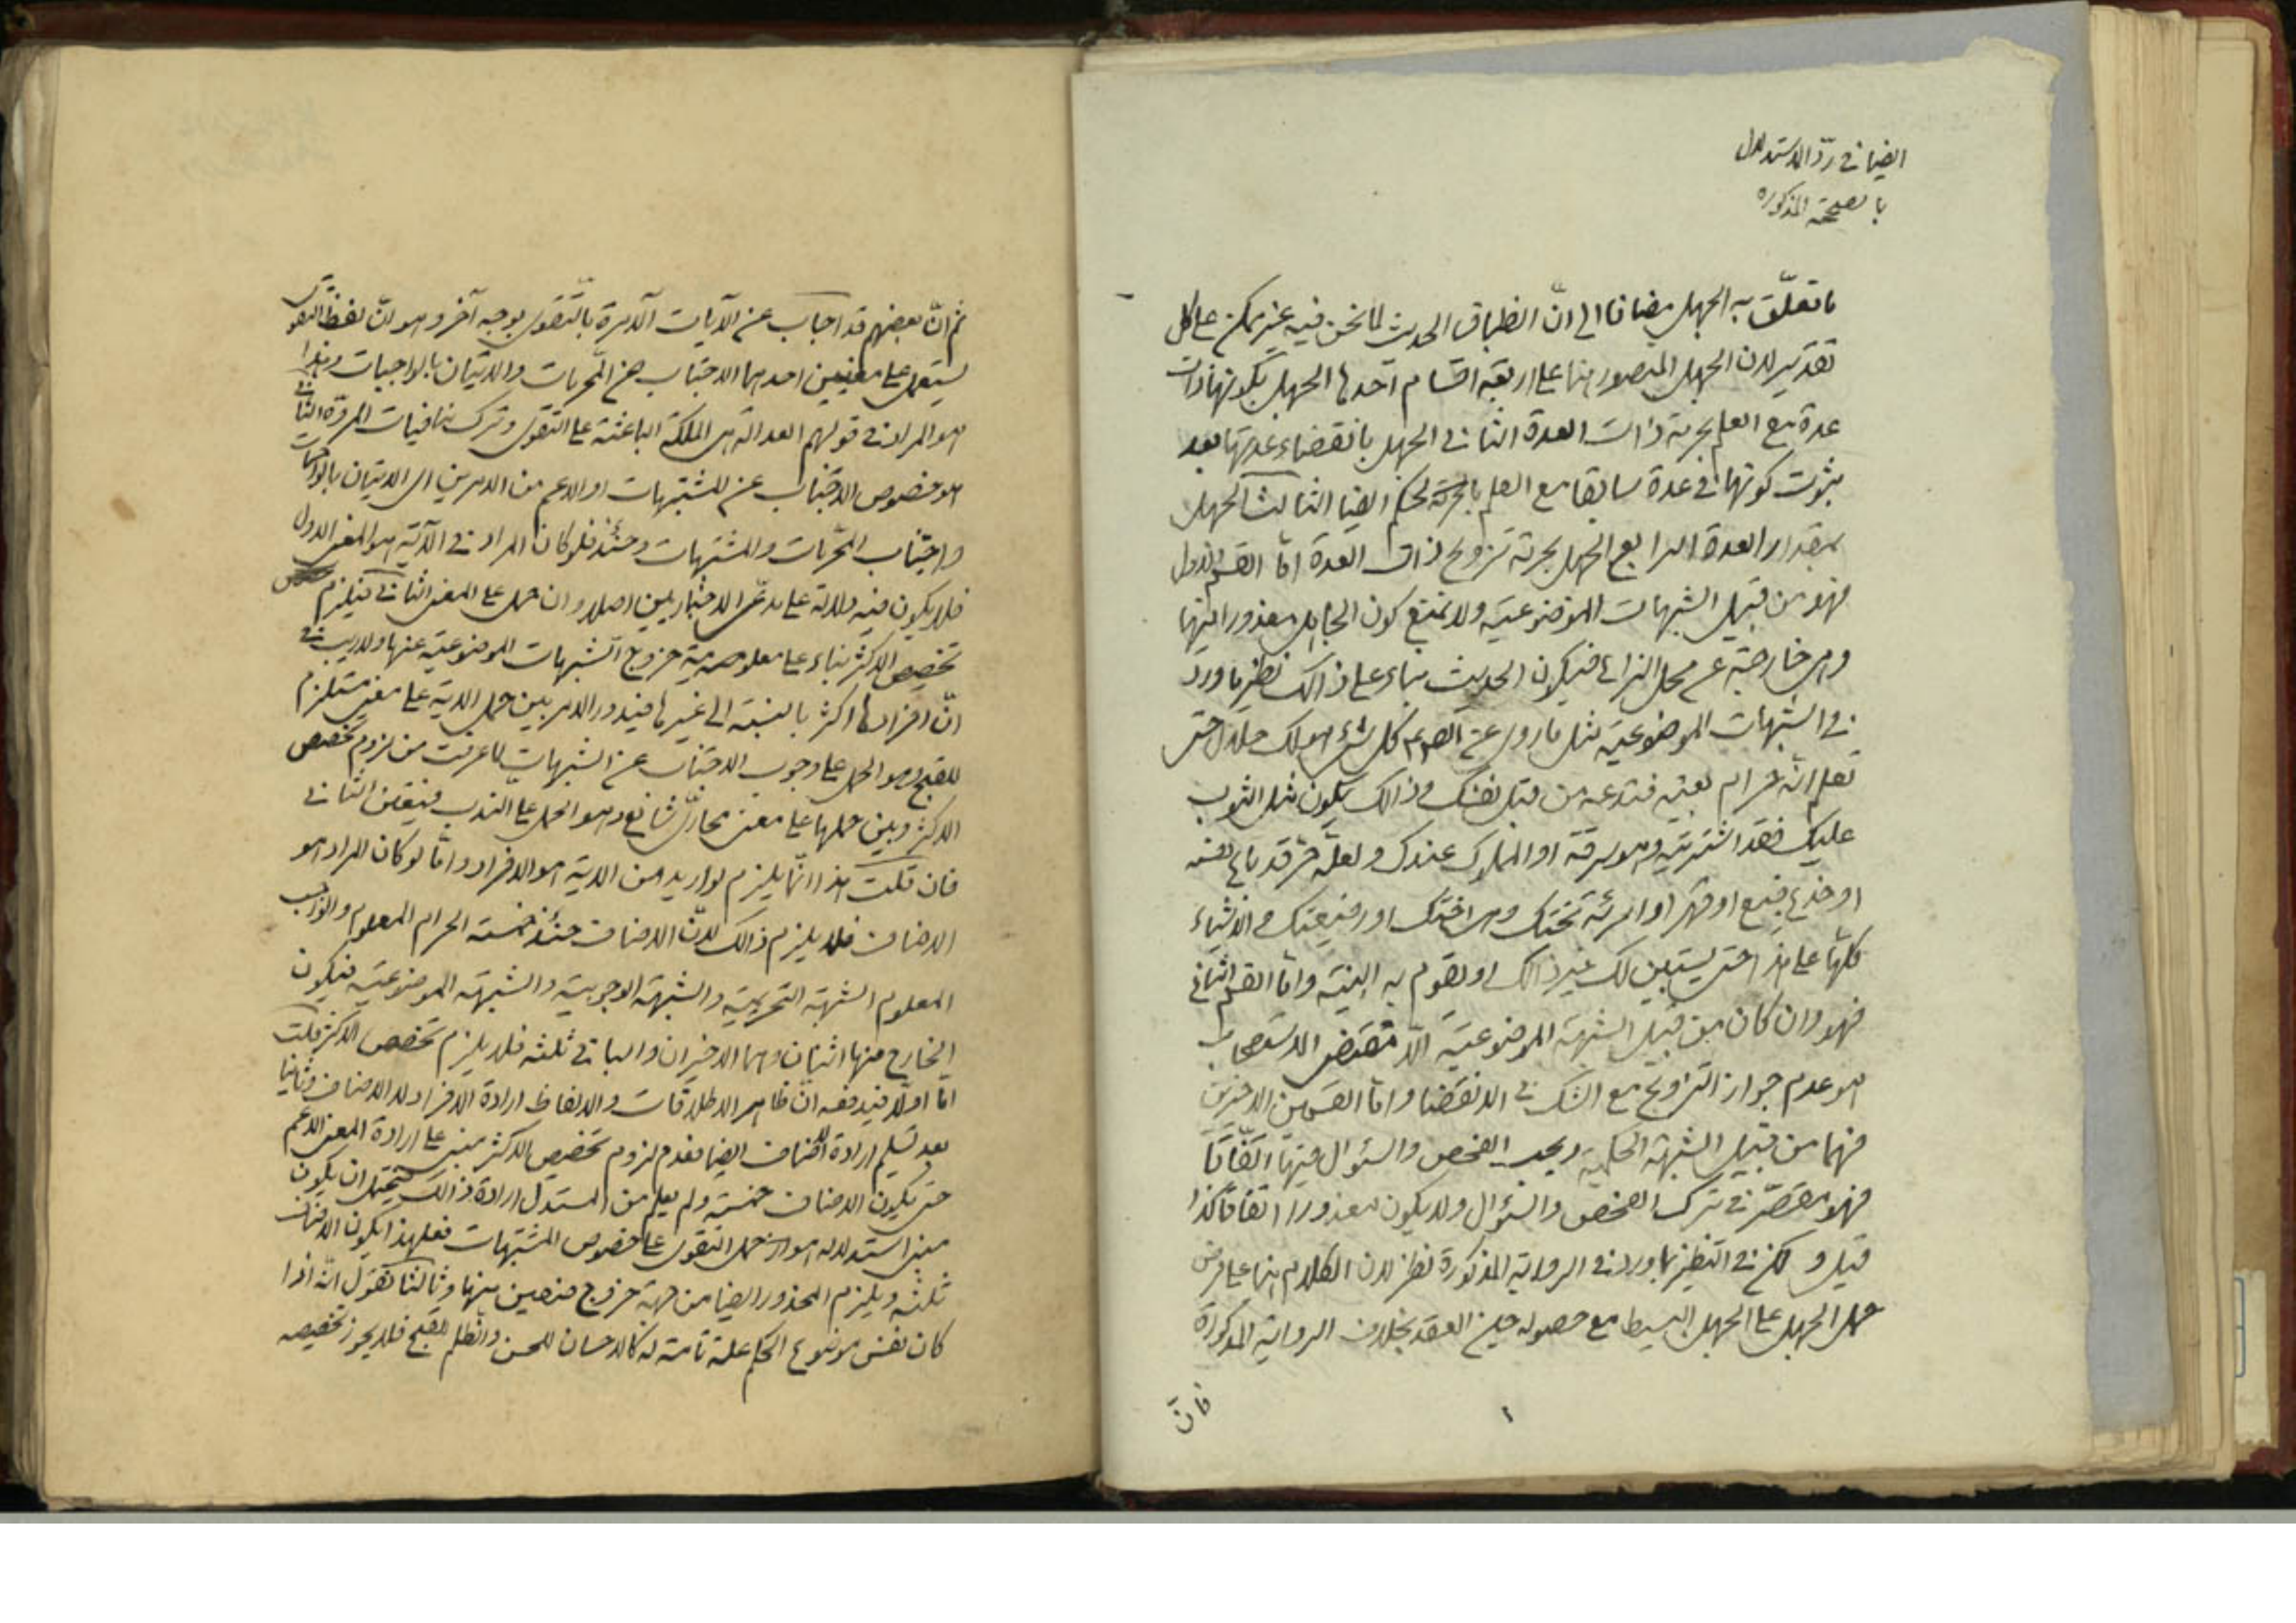 ايضا في ردّ الاستدلال
بالصحيحة المذكورة
ما تعلّق به الجهل مضافا الى انّ انطباق الحديث لما نحن فيه غير ممكن على كل
تقدير لان الجهل المتصور هنا على اربعة اقسام احدها الجهل بكونها ذات
عدة مع العلم بحرمة ذات العدة الثاني الجهل بانقضاء عدتها بعد
ثبوت كونها في عدة سابقا مع العلم بالحرمة لحكم ايضا الثالث الجهل
بمقدار العدة الرابع الجهل بحرمة تزويج ذات العدة امّا القسم الاول
فهو من قبيل الشبهات الموضوعيّة ولا نمنع كون الجاهل معذورا فيها
وهي خارجة عن محل النزاع فيكون الحديث بناء على ذالك نظير ما ورد
في الشبهات الموضوعيّة مثل ما روى عن الصم كل شئ هو لك حلال حتى
تعلم انّه حرام بعينه فتدعه من قبل نفسك وذالك يكون مثل الثوب
عليك فقد اشتريته وهو سرقة او المملوك عندك ولعلّه حر قد باع نفسه
او خدع فبيع او قهر او امرئة تحتك وهي اختك او رضيعتك والاشياء
كلها على هذا حتى يستبين لك غير ذالك او تقوم به البينة وامّا القسم الثاني
فهو وان كان من قبيل الشبهة الموضوعيّة الّا مقتضى الاستصحاب
هو عدم جواز التزاويج مع الشك في الانقضا وامّا القسمين الاخيرين
فهما من قبيل الشبهة الحكمية ويجب الفحص والسئوال فيها اتفاقا
فهو مقصّر في ترك الفحص والسئوال ولا يكون معذورا اتفاقا كذا
قيل ولكن في التنظير بما ورد في الرواية المذكورة نظر لان الكلام هنا على فرض
حمل الجهل على الجهل البسيط مع حصوله حين العقد بخلاف الرواية المذكورة
فانّ
ثم انّ بعضهم قد اجاب عن الايات الآمرة بالتّقوى بوجه آخر وهو انّ لفظ التقوى
يستعمل على معنيين احدهما الاجتناب عن المحرمات والاتيان بالواجبات وهذا
هو المراد في قولهم العدالة هي الملكة الباعثة على التقوى وترك منافيات المروّة الثاني
هو خصوص الاجتناب عن المشتبهات او الاعم من الامرين اى الاتيان بالواجبات
واجتناب المحرمات والمشتبهات وحينئذ فلو كان المراد في الآية هو المعنى الاول
فلا يكون فيه دلالة على مدعى الاخباريين اصلا وان حمل على المعنى الثاني فيلزم
تخصيص الاكثر بناء على معلومية خروج الشبهات الموضوعيّة عنها ولا ريب في
انّ افرادها اكثر بالنسبة الى غيرها فيدور الامر بين حمل الاية على معنى مستلزم
للقبيح وهو الحمل على وجوب الاجتناب عن الشبهات لما عرفت من لزوم تخصيص
الاكثر وبين حملها على معنى مجازىّ شائع وهو الحمل على النّدب فيتعين الثاني
فان قلت هذا انّما يلزم لو اريد من الاية هو الافراد وامّا لو كان المراد هو
الاصناف فلا يلزم ذالك لانّ الاصناف حينئذ خمسة الحرام المعلوم والواجب
المعلوم والشبهة التحريمية والشبهة الوجوبية والشبهة الموضوعيّة فيكون
الخارج منها اثنان وهما الاخيران والباقي ثلثه فلا يلزم تخصيص الاكثر قلت
امّا اولا فيدفعه انّ ظاهر الاطلاقات والالفاظ ارادة الافراد لا الاصناف وثانيا
بعد تسليم ارادة الاصناف ايضا فعدم لزوم تخصيص الاكثر مبنى على ارادة المعنى الاعم
حتى يكون الاصناف خمسة ولم يعلم من المستدل ارادة ذالك فيحتمل ان يكون
مبنى استدلاله هو ان حمل التقوى على خصوص المشتبهات فعلى هذا يكون الاصناف
ثلثه ويلزم المحذور ايضا من جهة خروج صنفين منها وثالثا نقول انّه اذا
كان نفس موضوع الحكم علة تامة له كالاحسان للحسن والظلم للقبح فلا يجوز تخصيصه